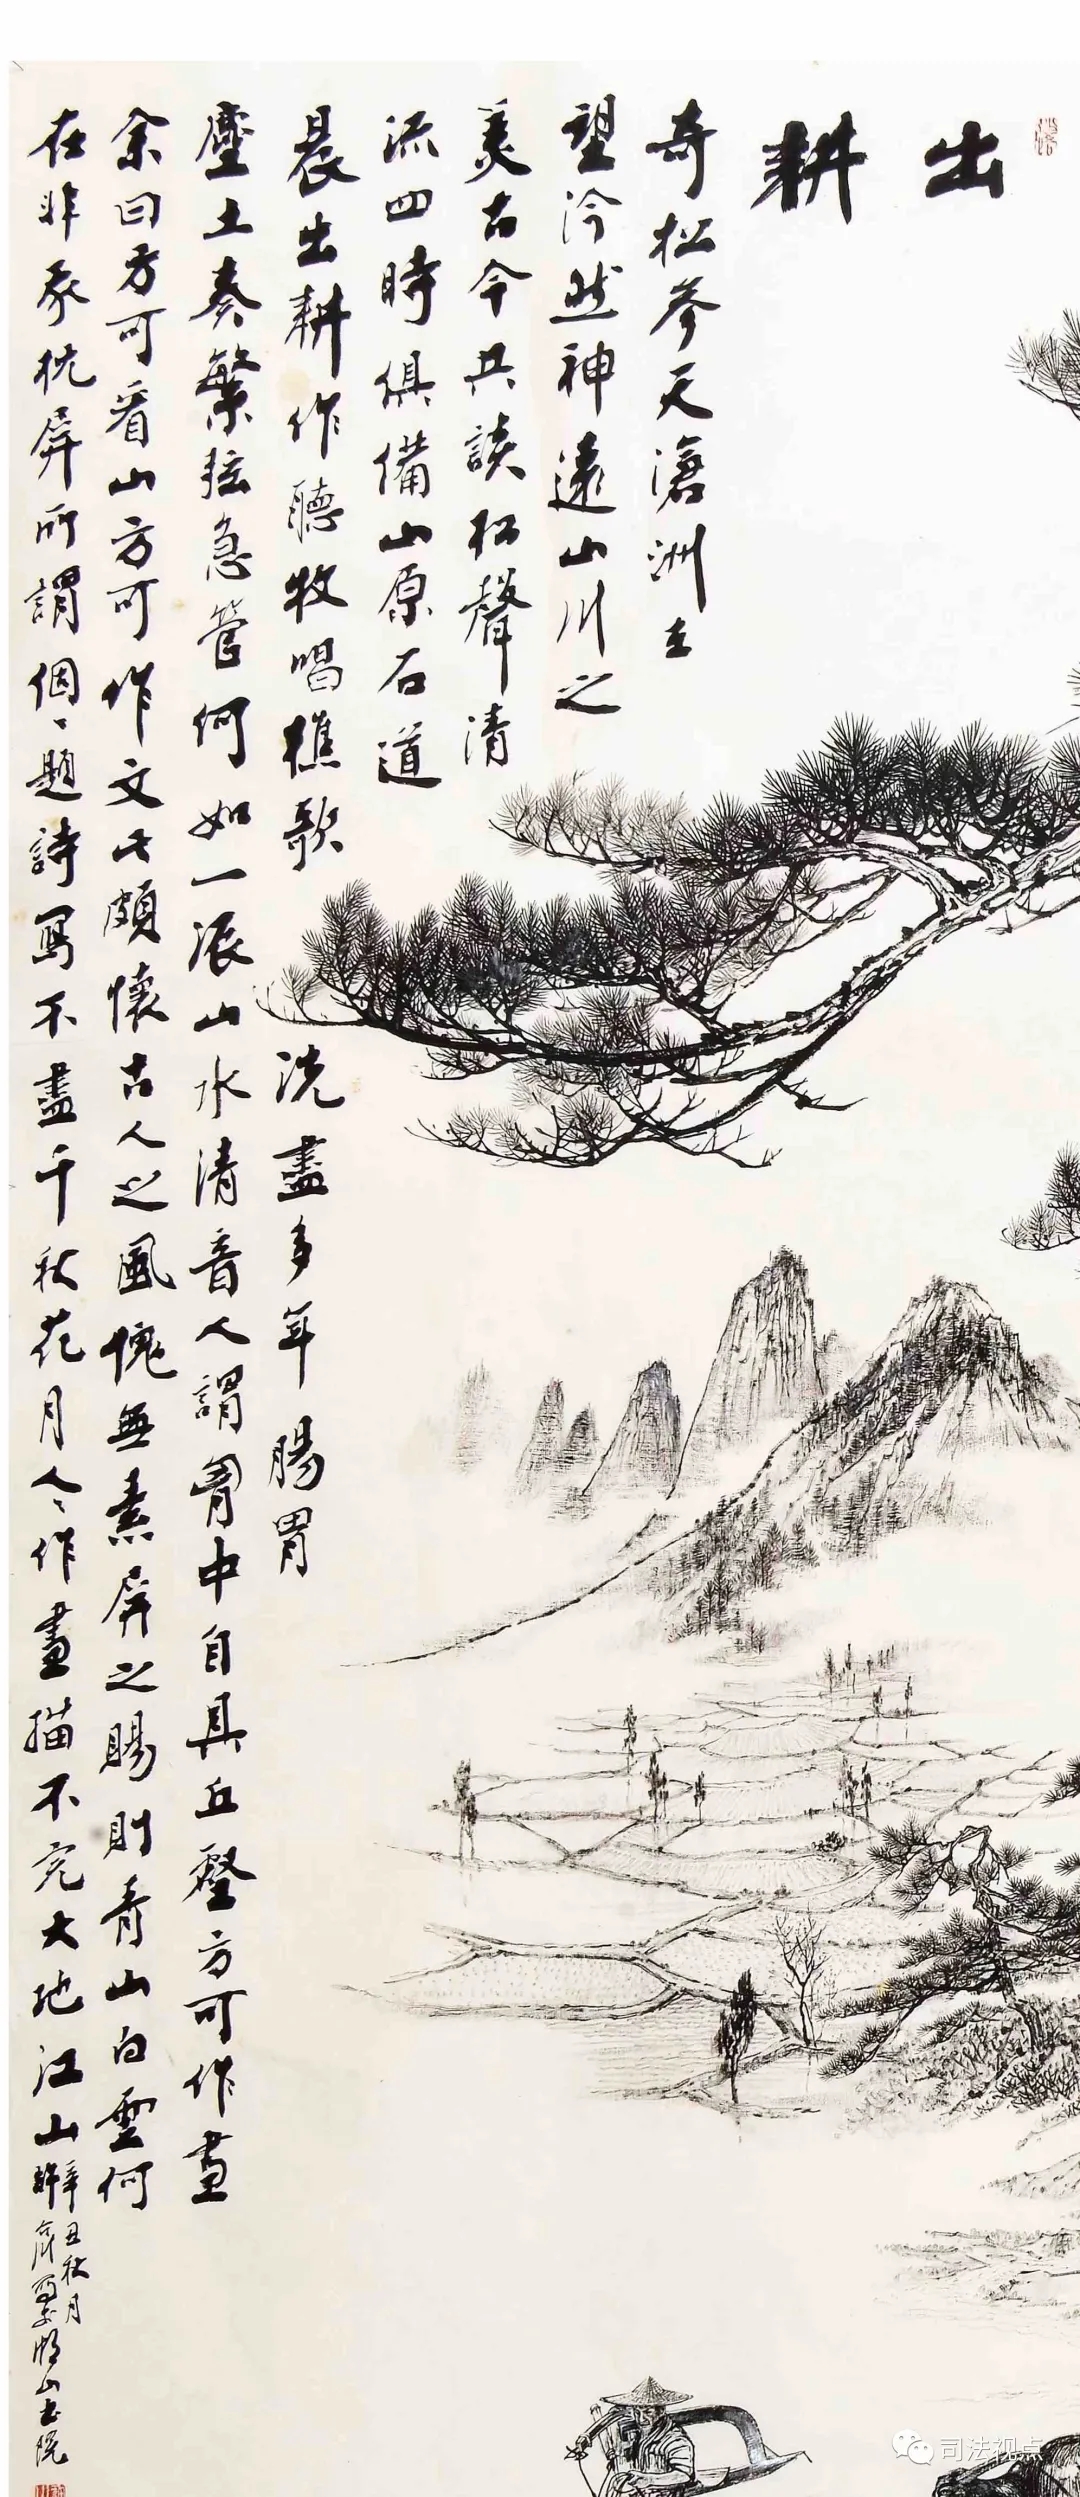 出耕
奇松參天滄洲在
望泠然神遠山川之
美古今共談松聲清
流四時俱備山原石道
晨出耕作聽牧唱樵歌 洗盡多年腸胃
塵土奏繁弦急管何如一派山水清音人謂胷中自具丘壑方可作畫
余曰方可看山方可作文頗懷古人之風愧無素屏之賜則青山白雲何
在非我枕屏所謂個々題詩寫不盡千秋花月人々作畫描不完大地江山
辛丑秋月
山書院
司法视点